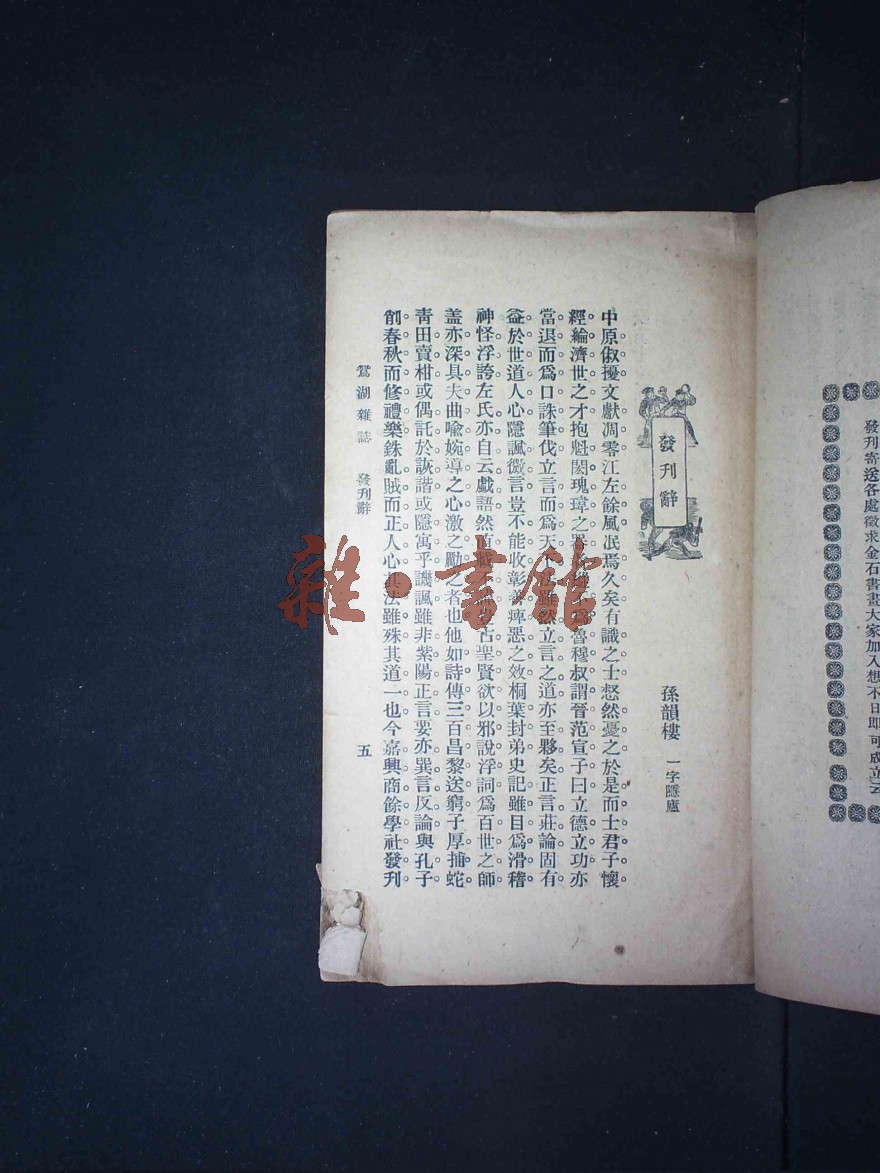 發刊寄送各處徵求金石書畫大家加入想不日即可成立云
發刊辭
孫韻樓 一字隱廬
中原俶擾文獻凋零江左餘風泯焉久矣有識之士惄然憂之於是而士君子懷
經綸濟世之才抱魁閎瑰瑋之 魯穆叔謂晉范宣子曰立德立功亦
當退而爲口誅筆伐立言而爲天 雖然立言之道亦至夥矣正言莊論固有
益於世道人心隱諷微言豈不能收彰善癉惡之效桐葉封弟史記雖目爲滑稽
神怪浮誇左氏亦自云戲語然 古聖賢欲以邪說浮詞爲百世之師
盖亦深具夫曲喻婉導之心激之勵之者也他如詩傳三百昌黎送窮子厚捕蛇
青田賣柑或偶託於詼諧或隱寓乎譏諷雖非紫陽正言要亦巽言反論與孔子
削春秋而修禮樂銖亂賊而正人心其法雖殊其道一也今嘉興商餘學社發刊
鴛湖雜誌 發刊辭 五
雜·書館